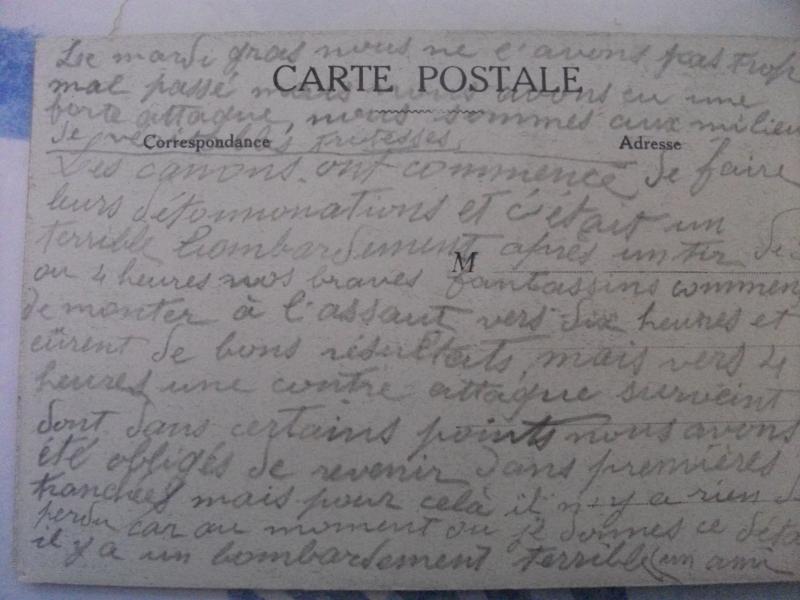 Le mardi gras nous ne l'avons pas trop
CARTE POSTALE
mal passé mais nous avons eu une
forte attaque, nous sommes aux milieu
de veritables tristesses,
Correspondance
Adresse
Les canons ont commencé de faire
leurs détonnonations et c'était un
terrible bombardement après un tir de
M
ou 4 heures nos braves fantassins commen
de monter à l'assaut vers dix heures et
eürent de bons résultats, mais vers 4
heures une contre attaque survient
dont dans certains points nous avons
été obligés de revenir dans premières
tranchées mais pour celà il n-y a rien d
perdu car au moment ou je donnes ce déta
il y a un bombardement terrible (un ami